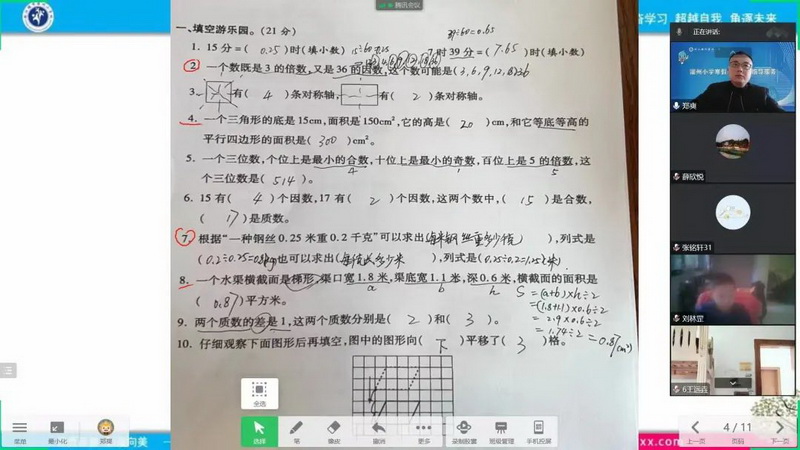 腾讯会议
学习 超越自我 角逐未来
一、填空游乐园。(21 分)
39÷60=0.65
1. 15分=( 0.25 )时(填小数) 15÷60=0.25 7时39分=( 7.65 )时(填小数)
2. 一个数既是3的倍数,又是36的因数,这个数可能是(3,6,9,12,18)36
3. 有( 4 )条对称轴, 有( 2 )条对称轴。
4. 一个三角形的底是15cm,面积是150cm²,它的高是( 20 )cm,和它等底等高的
平行四边形的面积是( 300 )cm²。
5. 一个三位数,个位上是最小的合数,十位上是最小的奇数,百位上是5的倍数,这
4 1 5
个三位数是( 514 )。
6. 15有( 4 )个因数,17有( 2 )个因数,这两个数中,( 15 )是合数,
( 17 )是质数。
7. 根据“一种钢丝0.25米重0.2千克”可以求出( ),列式是
( )也可以求出( ),列式是( )
8. 一个水渠横截面是梯形,渠口宽1.8米,渠底宽1.1米,深0.6米,横截面的面积是
a b h S=(a+b)×h÷2
( 0.87 )平方米。
=(1.8+1.1)×0.6÷2
=2.9×0.6÷2
=1.74÷2=0.87(m²)
9. 两个质数的差是1,这两个质数分别是( 2 )和( 3 )。
10. 仔细观察下面图形后再填空,图中的图形向( 下 )平移了( 3 )格。
正在讲话:
郑爽
薛欣悦
张铭轩31
刘林罡
全选
菜单 最小化 郑爽
选择 笔 橡皮 撤消 更多 录制胶囊 班级管理 手机投屏
4 / 11
上一页 页码 下一页
向美
xx.com